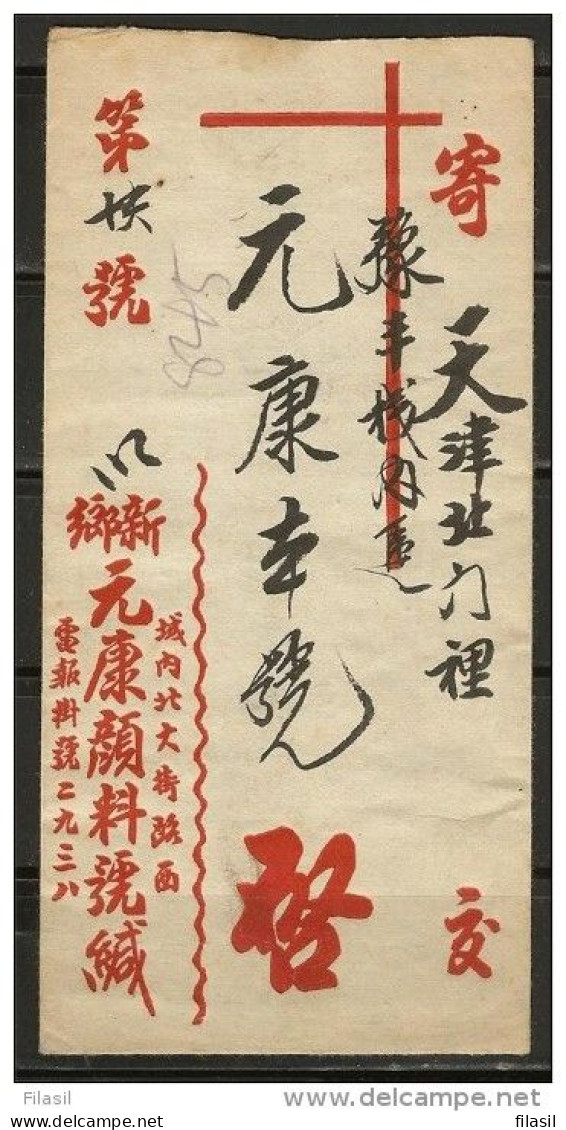 寄 天津北门裡 交
豫丰棧內
元康本號 啓
第 號
新鄉
城内北大街路西
元康顏料號緘
電報掛號二九三八
Filasil
filasil
delcampe.net